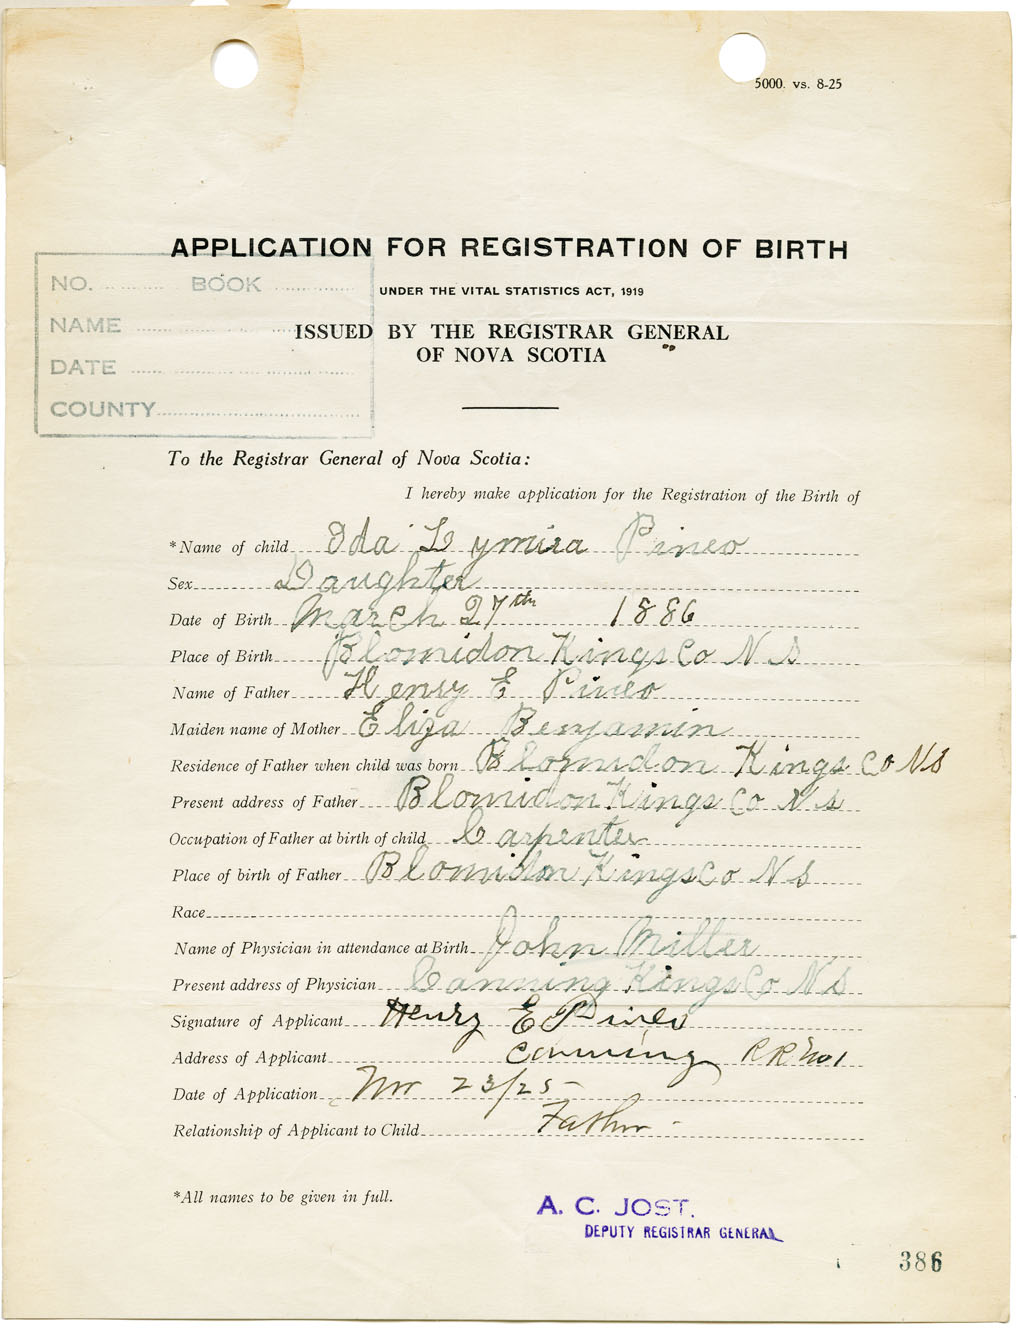 5000. vs. 8-25
APPLICATION FOR REGISTRATION OF BIRTH
NO. BOOK
UNDER THE VITAL STATISTICS ACT, 1919
NAME
ISSUED BY THE REGISTRAR GENERAL
OF NOVA SCOTIA
DATE
COUNTY
To the Registrar General of Nova Scotia:
I hereby make application for the Registration of the Birth of
*Name of child Ida Lymira Pineo
Sex Daughter
Date of Birth March 27th 1886
Place of Birth Blomidon Kings Co N S
Name of Father Henry E Pineo
Maiden name of Mother Eliza Benjamin
Residence of Father when child was born Blomidon Kings Co N S
Present address of Father Blomidon Kings Co N S
Occupation of Father at birth of child Carpenter
Place of birth of Father Blomidon Kings Co N S
Race
Name of Physician in attendance at Birth John Miller
Present address of Physician Canning Kings Co N S
Signature of Applicant Henry E Pineo
Address of Applicant Canning R R No 1
Date of Application Nov 23/25
Relationship of Applicant to Child Father
*All names to be given in full.
A. C. JOST.
DEPUTY REGISTRAR GENERAL
386